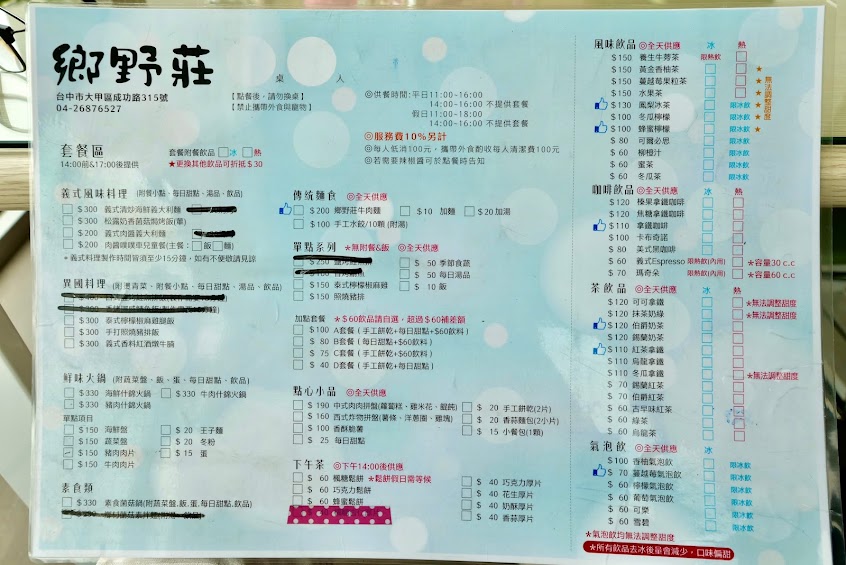 鄉野莊
桌 人
台中市大甲區成功路315號
04-26876527
【點餐後，請勿換桌】
【禁止攜帶外食與寵物】
◎供餐時間:平日11:00~16:00
14:00~16:00 不提供套餐
假日11:00~18:00
14:00~16:00 不提供套餐
◎服務費10%另計
◎每人低消100元，攜帶外食酌收每人清潔費100元
◎若需要辣椒醬可於點餐時告知
套餐區
14:00前&17:00後提供
套餐附餐飲品 冰 熱
★更換其他飲品可折抵$30
義式風味料理 (附餐小點、每日甜點、湯品、飲品)
$300 義式清炒海鮮義大利麵
$300 松露奶香菌菇焗烤飯(單)
$200 義式肉醬義大利麵
$200 肉醬噗噗車兒童餐(主餐: 飯 麵)
*義式料理製作時間皆須至少15分鐘，如有不便敬請見諒
異國料理 (附燙青菜、附餐小點、每日甜點、湯品、飲品)
$300 泰式檸檬椒麻雞腿飯
$300 手打照燒豬排飯
$300 義式香料紅酒燉牛腩
鮮味火鍋 (附蔬菜盤、飯、蛋、每日甜點、飲品)
$330 海鮮什錦火鍋
$330 牛肉什錦火鍋
$330 豬肉什錦火鍋
單點項目
$150 海鮮盤
$20 王子麵
$150 蔬菜盤
$20 冬粉
$150 豬肉肉片
$15 蛋
$150 牛肉肉片
素食類
$330 素食菌菇鍋(附蔬菜盤.飯.蛋.每日甜點.飲品)
傳統麵食 ◎全天供應
$200 鄉野莊牛肉麵
$10 加麵
$20 加湯
$100 手工水餃/10顆 (附湯)
單點系列 ★無附餐&飯 ◎全天供應
$250
$50 季節食蔬
$50 每日湯品
$150 泰式檸檬椒麻雞
$10 飯
$150 照燒豬排
加點套餐 ★$60飲品請自選，超過$60補差額
$100 A套餐 (手工餅乾+每日甜點+$60飲料)
$80 B套餐 (每日甜點+$60飲料)
$75 C套餐 (手工餅乾+$60飲料)
$40 D套餐 (手工餅乾+每日甜點)
點心小品 ◎全天供應
$190 中式肉肉拼盤(蘿蔔糕、雞米花、餛飩)
$20 手工餅乾(2片)
$160 西式炸物拼盤(薯條、洋蔥圈、雞塊)
$20 香蒜麵包(2小片)
$100 香酥脆薯
$15 小餐包(1顆)
$25 每日甜點
下午茶 ◎下午14:00後供應
$60 楓糖鬆餅 ★鬆餅假日需等候
$40 巧克力厚片
$60 巧克力鬆餅
$40 花生厚片
$60 蜂蜜鬆餅
$40 奶酥厚片
$40 香蒜厚片
風味飲品 ◎全天供應 冰 熱
$150 養生牛蒡茶 限熱飲
$150 黃金香柚茶 ★
$150 蔓越莓果粒茶 ★
$150 水果茶 ★
無法調整甜度
$130 鳳梨冰茶 限冰飲 ★
$100 冬瓜檸檬 限冰飲 ★
$100 蜂蜜檸檬 限冰飲 ★
$80 可爾必思 限冰飲
$60 柳橙汁 限冰飲
$60 蜜茶 限冰飲
$60 冬瓜茶 限冰飲
咖啡飲品 ◎全天供應 冰 熱
$120 榛果拿鐵咖啡
$120 焦糖拿鐵咖啡
$110 拿鐵咖啡
$100 卡布奇諾
$80 美式黑咖啡
$60 義式Espresso 限熱飲(內用) ★容量30 c.c
$70 瑪奇朵 限熱飲(內用) ★容量60 c.c
茶飲品 ◎全天供應 冰 熱
$120 可可拿鐵 ★無法調整甜度
$120 抹茶奶綠 ★無法調整甜度
$120 伯爵奶茶
$120 錫蘭奶茶
$110 紅茶拿鐵
$110 烏龍拿鐵
$110 冬瓜拿鐵 ★無法調整甜度
$70 錫蘭紅茶
$70 伯爵紅茶
$60 古早味紅茶
$60 綠茶
$60 烏龍茶
氣泡飲 ◎全天供應 冰
$100 香柚氣泡飲 限冰飲
$70 蔓越莓氣泡飲 限冰飲
$60 檸檬氣泡飲 限冰飲
$60 葡萄氣泡飲 限冰飲
$60 可樂 限冰飲
$60 雪碧 限冰飲
★氣泡飲均無法調整甜度
★所有飲品去冰後量會減少，口味偏甜